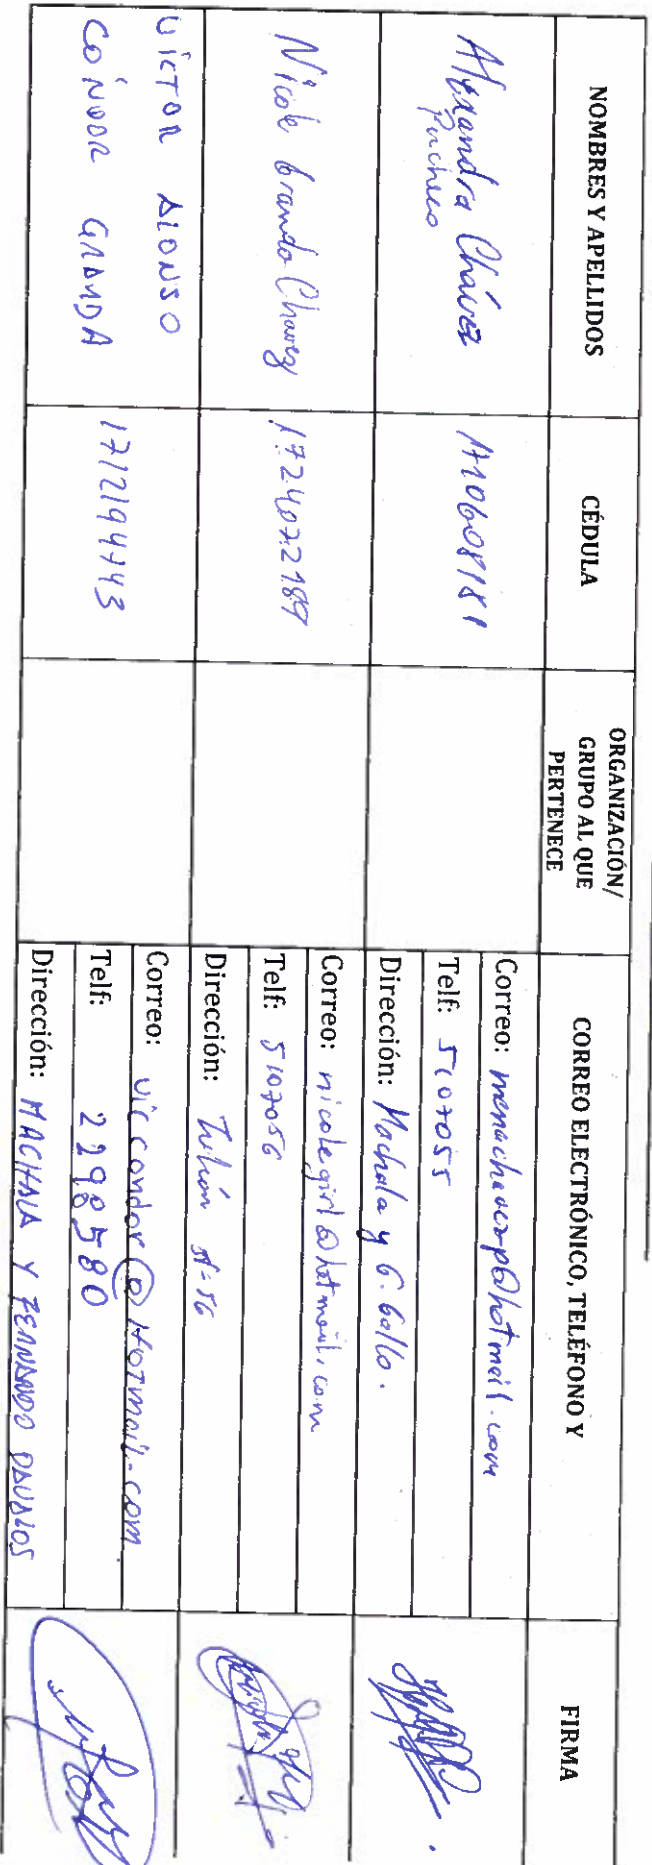 NOMBRES Y APELLIDOS
CÉDULA
ORGANIZACIÓN/
GRUPO AL QUE
PERTENECE
CORREO ELECTRÓNICO, TELÉFONO Y
FIRMA
Alexandra Chávez
Pacheco
1710608181
Correo: menachavezp@hotmail.com
Telf: 5107055
Dirección: Machala y G. Gallo.
Nicole Granda Chavez
1724072189
Correo: nicolegirl@hotmail.com
Telf: 5107056
Dirección:
VÍCTOR ALONSO
CÓNDOR GRANDA
1712194743
Correo: viccondor@Hotmail.com
Telf: 2298580
Dirección: MACHALA Y FERNANDO DAVALOS